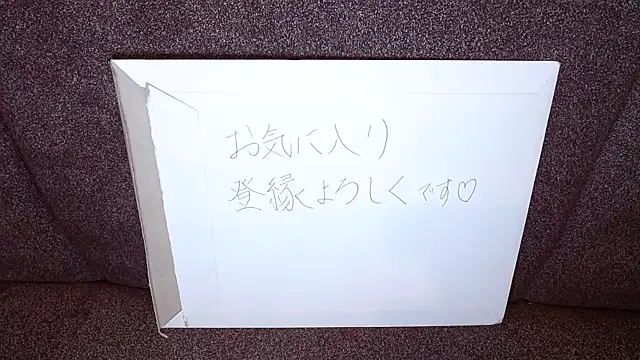 お気に入り
登縁よろしくです♡